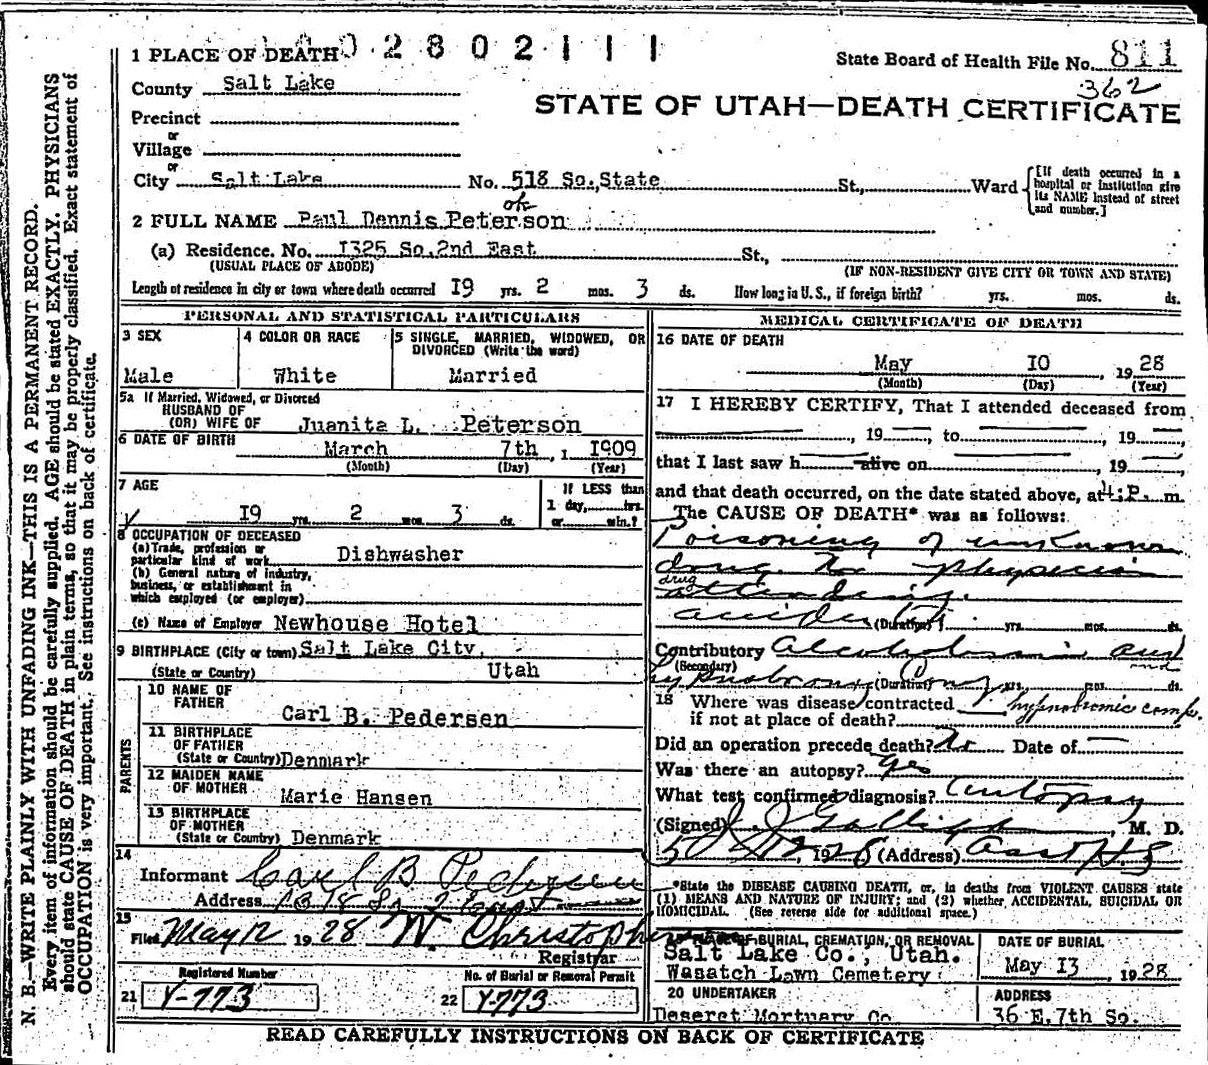 N. B.—WRITE PLAINLY WITH UNFADING INK—THIS IS A PERMANENT RECORD.
Every item of information should be carefully supplied. AGE should be stated EXACTLY. PHYSICIANS
should state CAUSE OF DEATH in plain terms, so that it may be properly classified. Exact statement of
OCCUPATION is very important. See instructions on back of certificate.
02802111
1 PLACE OF DEATH
State Board of Health File No. 811
362
County Salt Lake
STATE OF UTAH—DEATH CERTIFICATE
Precinct
or
Village
or
City Salt Lake No. 518 So. State St., Ward
[If death occurred in a hospital or institution give its NAME instead of street and number.]
ok
2 FULL NAME Paul Dennis Peterson
(a) Residence. No. 1325 So. 2nd East St.,
(USUAL PLACE OF ABODE) (IF NON-RESIDENT GIVE CITY OR TOWN AND STATE)
Length of residence in city or town where death occurred 19 yrs. 2 mos. 3 ds. How long in U. S., if foreign birth? yrs. mos. ds.
PERSONAL AND STATISTICAL PARTICULARS
3 SEX
Male
4 COLOR OR RACE
White
5 SINGLE, MARRIED, WIDOWED, OR
DIVORCED (Write the word)
Married
5a If Married, Widowed, or Divorced
HUSBAND OF
(OR) WIFE OF Juanita L. Peterson
6 DATE OF BIRTH
March 7th, 1 1909
(Month) (Day) (Year)
7 AGE
19 yrs. 2 mos. 3 ds.
If LESS than
1 day, hrs.
or min.?
8 OCCUPATION OF DECEASED
(a) Trade, profession or
particular kind of work Dishwasher
(b) General nature of industry,
business, or establishment in
which employed (or employer)
(c) Name of Employer Newhouse Hotel
9 BIRTHPLACE (City or town) Salt Lake City,
(State or Country) Utah
PARENTS
10 NAME OF
FATHER
Carl B. Pedersen
11 BIRTHPLACE
OF FATHER
(State or Country) Denmark
12 MAIDEN NAME
OF MOTHER
Marie Hansen
13 BIRTHPLACE
OF MOTHER
(State or Country) Denmark
14
Informant Carl B Pedersen
Address So 2 East
15
Filed May 12 1928 W. Christopherson
Registrar
Registered Number
21 Y-773
No. of Burial or Removal Permit
22 Y-773
MEDICAL CERTIFICATE OF DEATH
16 DATE OF DEATH
May 10, 1928
(Month) (Day) (Year)
17 I HEREBY CERTIFY, That I attended deceased from
, 19 , to , 19
that I last saw h alive on , 19
and that death occurred, on the date stated above, at 4:P. m.
The CAUSE OF DEATH* was as follows:
Poisoning of unknown
drug. No physician
drug
attending.
accident
(Duration) yrs. mos. ds.
Contributory Alcoholism and
(Secondary) nd
hypnobromic Comp
(Duration) yrs. mos. ds.
18 Where was disease contracted
if not at place of death?
hypnobromic comp.
Did an operation precede death? No Date of
Was there an autopsy? Yes
What test confirmed diagnosis? Autopsy
(Signed) J J Galligan, M. D.
1928 (Address)
*State the DISEASE CAUSING DEATH, or, in deaths from VIOLENT CAUSES state
(1) MEANS AND NATURE OF INJURY; and (2) whether ACCIDENTAL, SUICIDAL OR
HOMICIDAL. (See reverse side for additional space.)
19 PLACE OF BURIAL, CREMATION, OR REMOVAL
Salt Lake Co., Utah.
Wasatch Lawn Cemetery
DATE OF BURIAL
May 13, 1928
20 UNDERTAKER
Deseret Mortuary Co
ADDRESS
36 E. 7th So.
READ CAREFULLY INSTRUCTIONS ON BACK OF CERTIFICATE